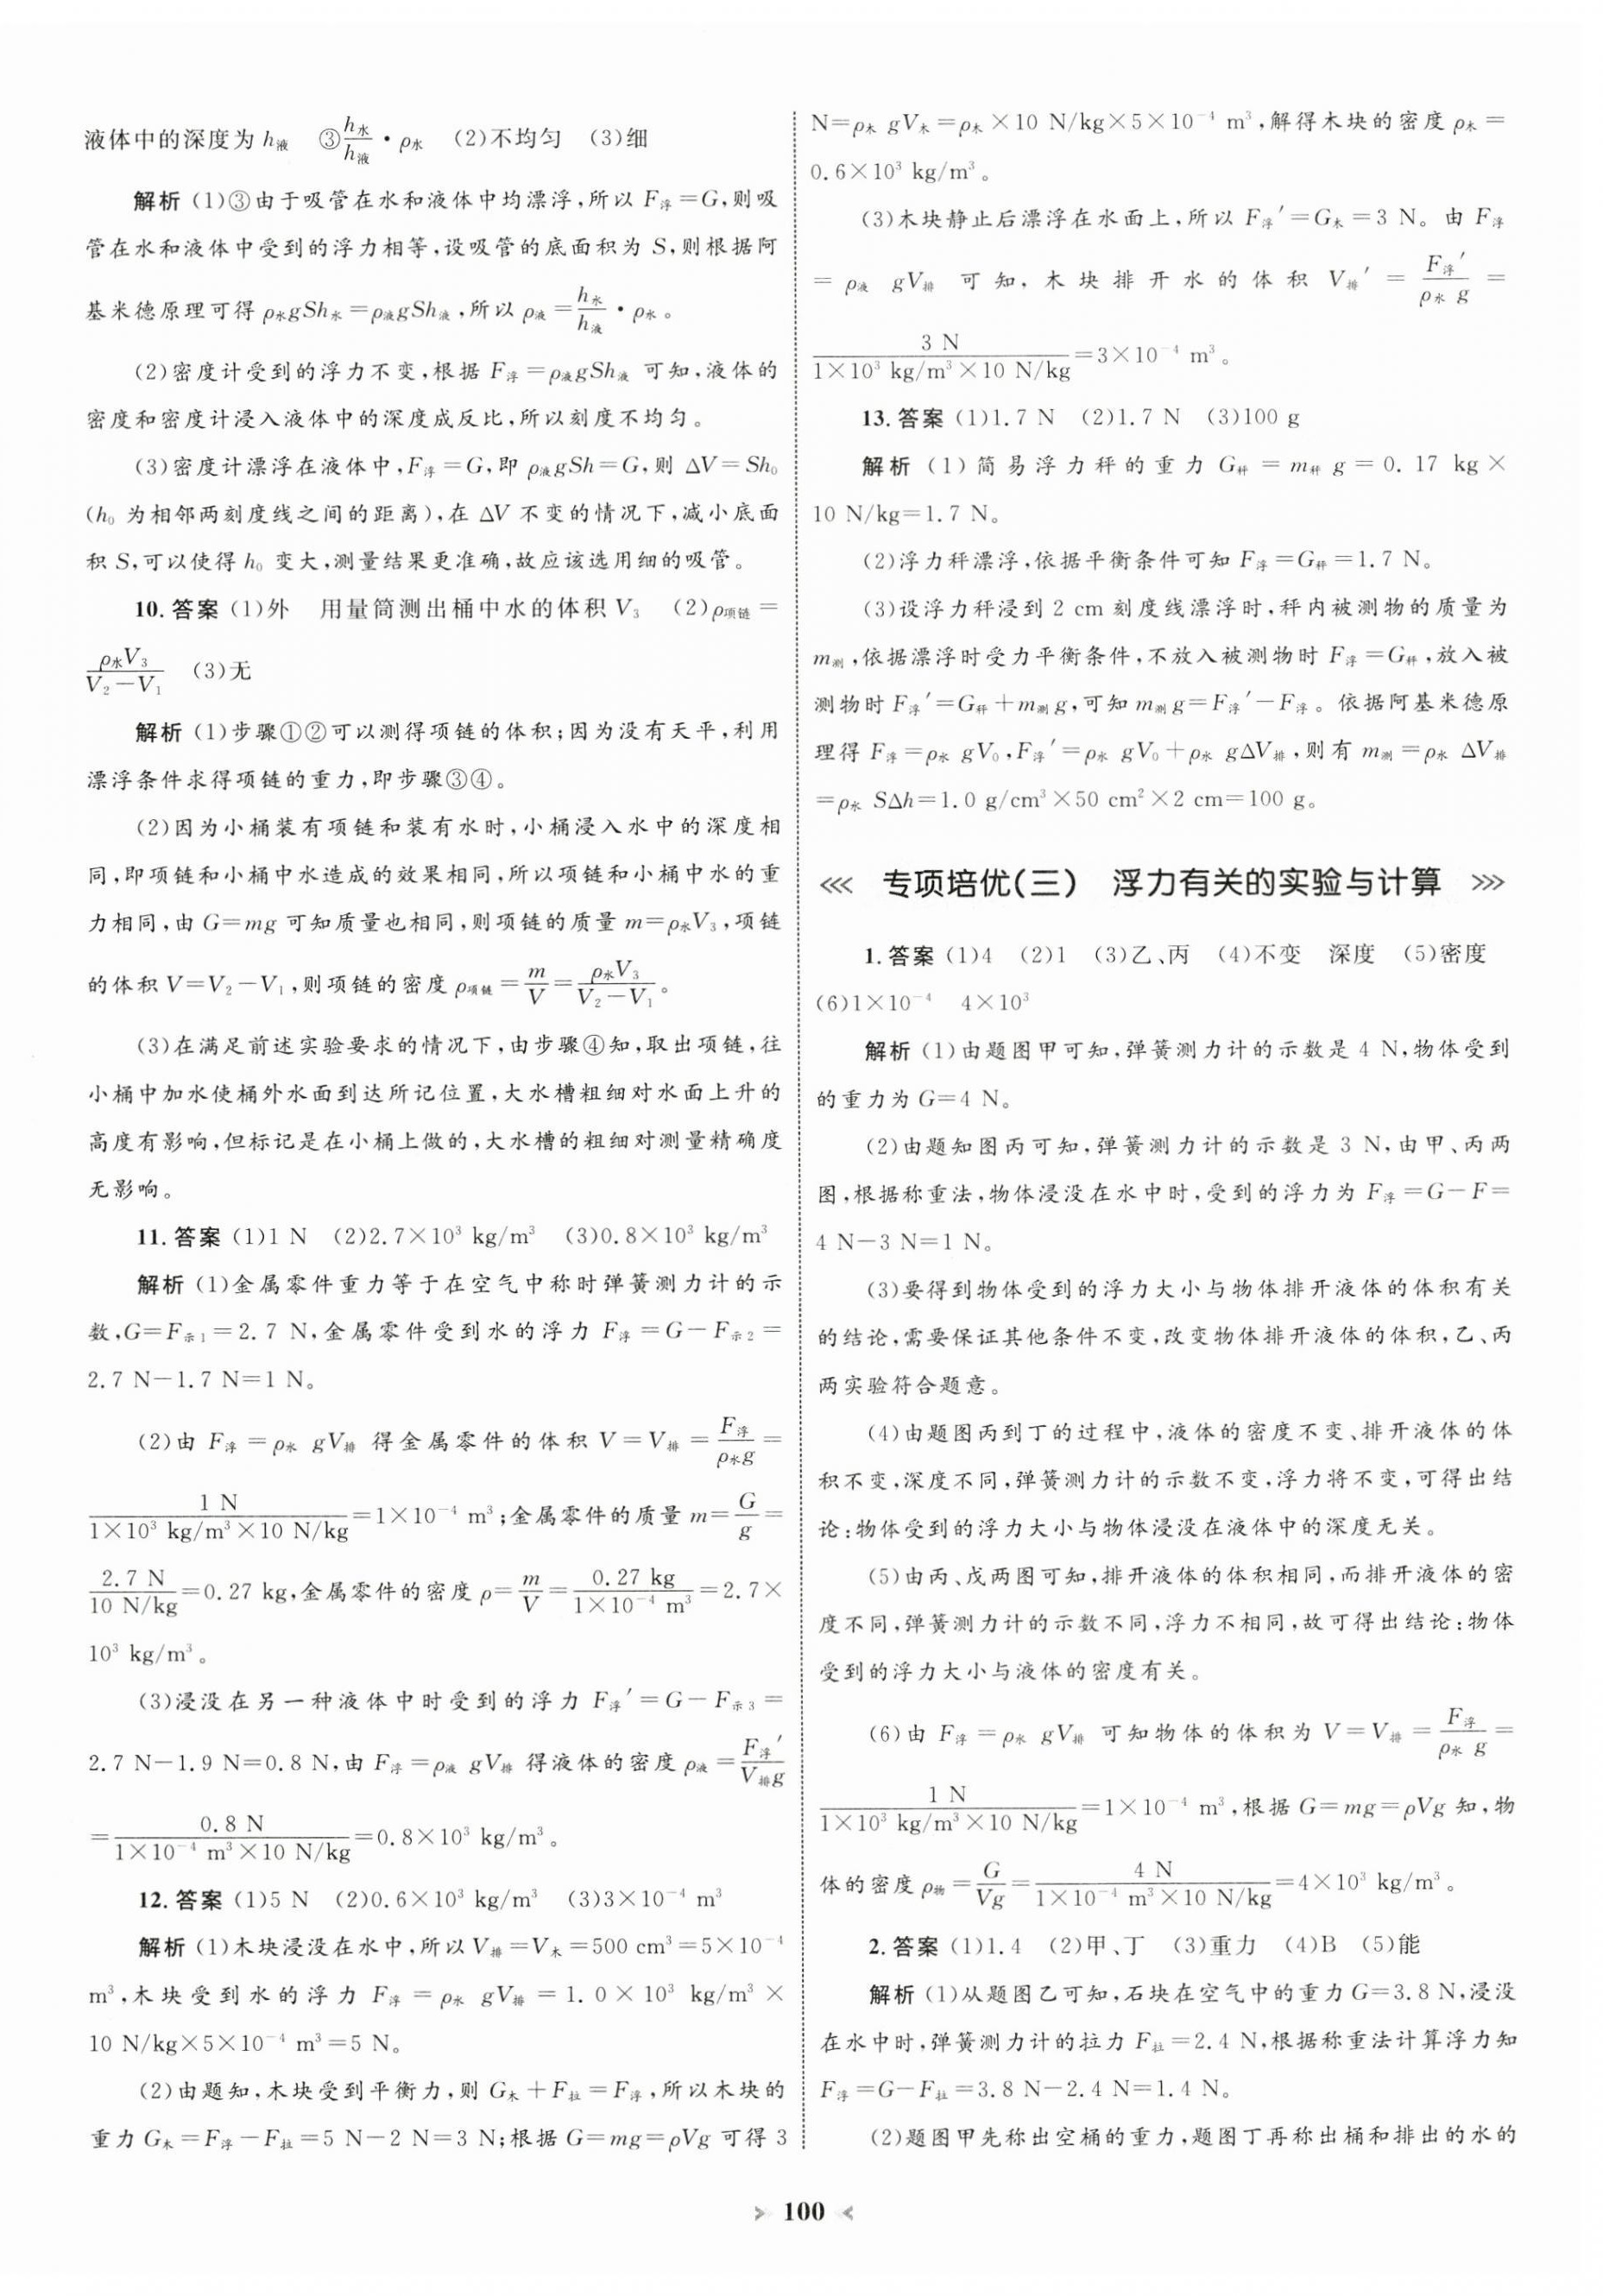 液体中的深度为 h液　③h水/h液・ρ水　(2)不均匀　(3)细
解析 (1)③由于吸管在水和液体中均漂浮,所以 F浮=G,则吸
管在水和液体中受到的浮力相等,设吸管的底面积为 S,则根据阿
基米德原理可得 ρ水gSh水=ρ液gSh液,所以 ρ液=h水/h液・ρ水。
(2)密度计受到的浮力不变,根据 F浮=ρ液gSh液 可知,液体的
密度和密度计浸入液体中的深度成反比,所以刻度不均匀。
(3)密度计漂浮在液体中,F浮=G,即 ρ液gSh=G,则 ΔV=Sh₀
(h₀ 为相邻两刻度线之间的距离),在 ΔV 不变的情况下,减小底面
积 S,可以使得 h₀ 变大,测量结果更准确,故应该选用细的吸管。
10.答案 (1)外　用量筒测出桶中水的体积 V₃　(2)ρ项链=
ρ水V₃/(V₂-V₁)　(3)无
解析 (1)步骤①②可以测得项链的体积;因为没有天平,利用
漂浮条件求得项链的重力,即步骤③④。
(2)因为小桶装有项链和装有水时,小桶浸入水中的深度相
同,即项链和小桶中水造成的效果相同,所以项链和小桶中水的重
力相同,由 G=mg 可知质量也相同,则项链的质量 m=ρ水V₃,项链
的体积 V=V₂-V₁,则项链的密度 ρ项链=m/V=ρ水V₃/(V₂-V₁)。
(3)在满足前述实验要求的情况下,由步骤④知,取出项链,往
小桶中加水使桶外水面到达所记位置,大水槽粗细对水面上升的
高度有影响,但标记是在小桶上做的,大水槽的粗细对测量精确度
无影响。
11.答案 (1)1 N　(2)2.7×10³ kg/m³　(3)0.8×10³ kg/m³
解析 (1)金属零件重力等于在空气中称时弹簧测力计的示
数,G=F示1=2.7 N,金属零件受到水的浮力 F浮=G-F示2=
2.7 N-1.7 N=1 N。
(2)由 F浮=ρ水 gV排 得金属零件的体积 V=V排=F浮/ρ水g=
1 N/(1×10³ kg/m³×10 N/kg)=1×10⁻⁴ m³;金属零件的质量 m=G/g=
2.7 N/10 N/kg=0.27 kg,金属零件的密度 ρ=m/V=0.27 kg/(1×10⁻⁴ m³)=2.7×
10³ kg/m³。
(3)浸没在另一种液体中时受到的浮力 F浮′=G-F示3=
2.7 N-1.9 N=0.8 N,由 F浮=ρ液 gV排 得液体的密度 ρ液=F浮′/V排g
=0.8 N/(1×10⁻⁴ m³×10 N/kg)=0.8×10³ kg/m³。
12.答案 (1)5 N　(2)0.6×10³ kg/m³　(3)3×10⁻⁴ m³
解析 (1)木块浸没在水中,所以V排=V木=500 cm³=5×10⁻⁴
m³,木块受到水的浮力 F浮=ρ水 gV排=1.0×10³ kg/m³×
10 N/kg×5×10⁻⁴ m³=5 N。
(2)由题知,木块受到平衡力,则 G木+F拉=F浮,所以木块的
重力 G木=F浮-F拉=5 N-2 N=3 N;根据 G=mg=ρVg 可得 3
N=ρ木 gV木=ρ木×10 N/kg×5×10⁻⁴ m³,解得木块的密度 ρ木=
0.6×10³ kg/m³。
(3)木块静止后漂浮在水面上,所以 F浮′=G木=3 N。由 F浮
=ρ液 gV排 可知,木块排开水的体积 V排′=F浮′/ρ水 g=
3 N/(1×10³ kg/m³×10 N/kg)=3×10⁻⁴ m³。
13.答案 (1)1.7 N　(2)1.7 N　(3)100 g
解析 (1)简易浮力秤的重力 G秤=m秤 g=0.17 kg×
10 N/kg=1.7 N。
(2)浮力秤漂浮,依据平衡条件可知 F浮=G秤=1.7 N。
(3)设浮力秤浸到 2 cm 刻度线漂浮时,秤内被测物的质量为
m测,依据漂浮时受力平衡条件,不放入被测物时 F浮=G秤,放入被
测物时 F浮′=G秤+m测g,可知 m测g=F浮′-F浮。依据阿基米德原
理得 F浮=ρ水 gV₀,F浮′=ρ水 gV₀+ρ水 gΔV排,则有 m测=ρ水 ΔV排
=ρ水 SΔh=1.0 g/cm³×50 cm²×2 cm=100 g。
专项培优(三)　浮力有关的实验与计算
1.答案 (1)4　(2)1　(3)乙、丙　(4)不变　深度　(5)密度
(6)1×10⁻⁴　4×10³
解析 (1)由题图甲可知,弹簧测力计的示数是 4 N,物体受到
的重力为 G=4 N。
(2)由题知图丙可知,弹簧测力计的示数是 3 N,由甲、丙两
图,根据称重法,物体浸没在水中时,受到的浮力为 F浮=G-F=
4 N-3 N=1 N。
(3)要得到物体受到的浮力大小与物体排开液体的体积有关
的结论,需要保证其他条件不变,改变物体排开液体的体积,乙、丙
两实验符合题意。
(4)由题图丙到丁的过程中,液体的密度不变、排开液体的体
积不变,深度不同,弹簧测力计的示数不变,浮力将不变,可得出结
论:物体受到的浮力大小与物体浸没在液体中的深度无关。
(5)由丙、戊两图可知,排开液体的体积相同,而排开液体的密
度不同,弹簧测力计的示数不同,浮力不相同,故可得出结论:物体
受到的浮力大小与液体的密度有关。
(6)由 F浮=ρ水 gV排 可知物体的体积为 V=V排=F浮/ρ水 g=
1 N/(1×10³ kg/m³×10 N/kg)=1×10⁻⁴ m³,根据 G=mg=ρVg 知,物
体的密度 ρ物=G/Vg=4 N/(1×10⁻⁴ m³×10 N/kg)=4×10³ kg/m³。
2.答案 (1)1.4　(2)甲、丁　(3)重力　(4)B　(5)能
解析 (1)从题图乙可知,石块在空气中的重力 G=3.8 N,浸没
在水中时,弹簧测力计的拉力 F拉=2.4 N,根据称重法计算浮力知
F浮=G-F拉=3.8 N-2.4 N=1.4 N。
(2)题图甲先称出空桶的重力,题图丁再称出桶和排出的水的
100